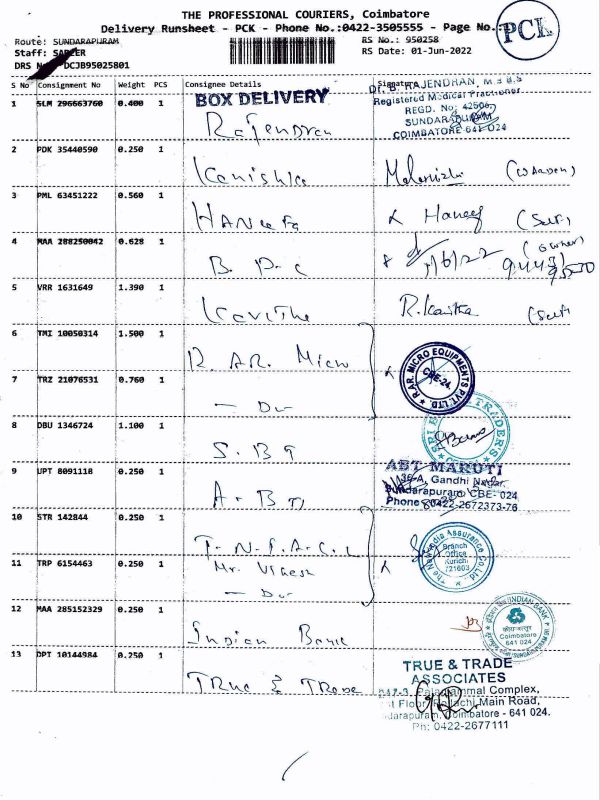 THE PROFESSIONAL COURIERS, Coimbatore
Delivery Runsheet - PCK - Phone No.:0422-3505555 - Page No.:
PCK
Route: SUNDARAPURAM
RS No.: 950258
Staff:
RS Date: 01-Jun-2022
DRS DCJB95025801
S No Consignment No Weight PCS Consignee Details Signature
BOX DELIVERY
Dr. B. RAJENDRAN, M.B.B.S
Registered Medical Practioner
REGD. No: 42506,
SUNDARAPURAM
COIMBATORE-641 024
1 SLM 296663760 0.400 1 Rajendran
2 PDK 35440590 0.250 1 Kanishka (Warden)
3 PML 63451222 0.560 1 HANeefa Haneef (Self)
4 MAA 288250042 0.628 1 B. P. C 1/6/22 (owner)
5 VRR 1631649 1.390 1 Kavitha R. Kavitha (Self)
6 TMI 10050314 1.500 1 R. AR. Micro
R.AR. MICRO EQUIPMENTS PVT. LTD. CBE-24.
7 TRZ 21076531 0.760 1 — Do
8 DBU 1346724 1.100 1 S. B T
SRI TRADERS
9 UPT 8091118 0.250 1 A. B T
ABT MARUTI
36-A, Gandhi Nagar,
Sundarapuram CBE- 024
Phone 0422-2672373-76
10 STR 142844 0.250 1 T. N. I. A. C. L
The New India Assurance Co.Ltd
Branch
Office
Kurichi
721603
11 TRP 6154463 0.250 1 Mr. Vignesh
— Do
12 MAA 285152329 0.250 1 Indian Bank
INDIAN BANK
Coimbatore
641 024
13 DPT 10144984 0.250 1 True & Trade
TRUE & TRADE
ASSOCIATES
Palaniammal Complex,
st Floor, Pollachi Main Road,
Sundarapuram, Coimbatore - 641 024.
Ph: 0422-2677111